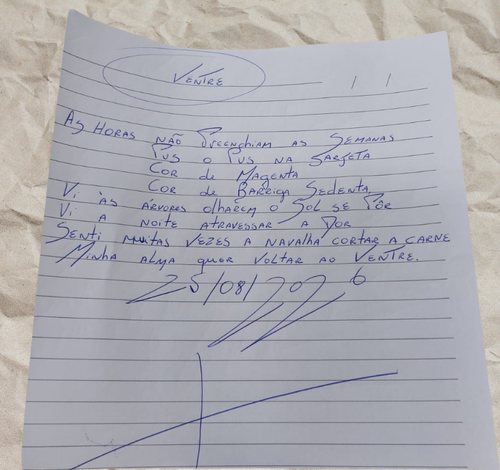 VENTRE
/ /
AS HORAS NÃO PREENCHIAM AS SEMANAS
PUS O PUS NA SARJETA
COR de MAGENTA
COR de BARRIGA SEDENTA
VI ÀS ÁRVORES OLHAREM O SOL SE PÔR
VI A NOITE ATRAVESSAR A DOR
SENTI MUITAS VEZES A NAVALHA CORTAR A CARNE
MINHA ALMA QUER VOLTAR AO VENTRE.
25/08/